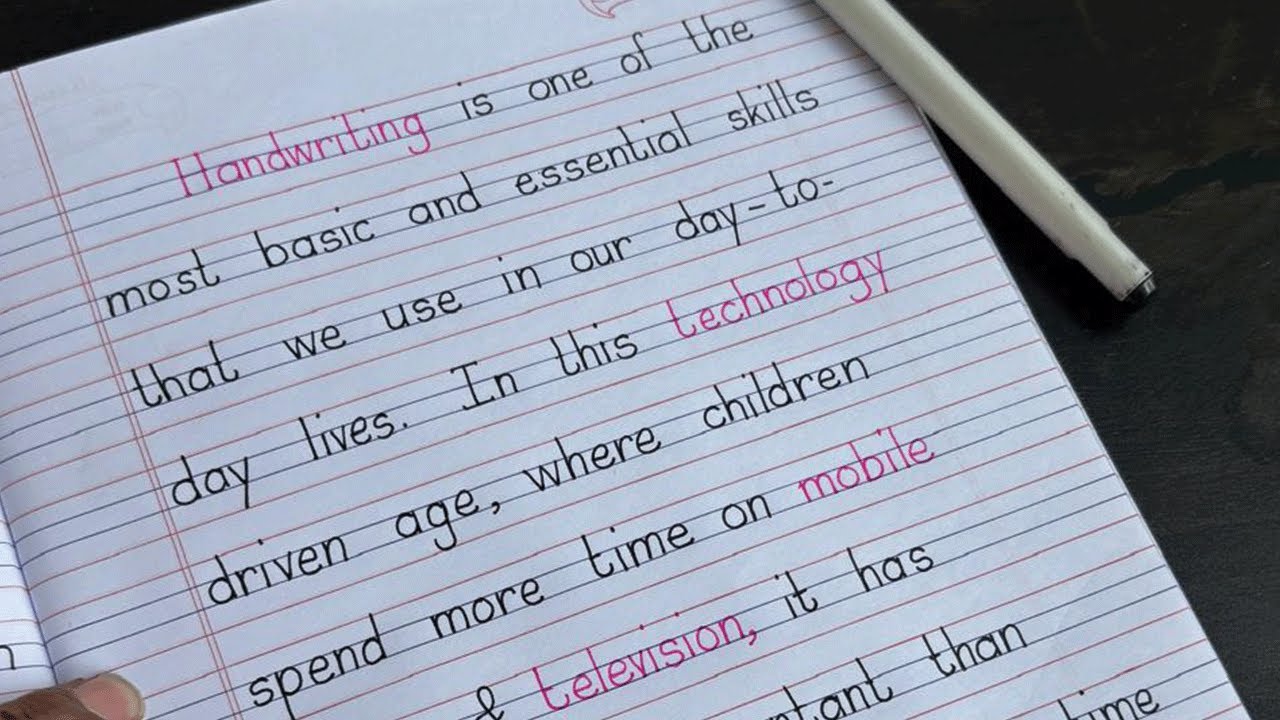 Handwriting is one of the
most basic and essential skills
that we use in our day-to-
day lives. In this technology
driven age, where children
spend more time on mobile
& television, it has
than
time